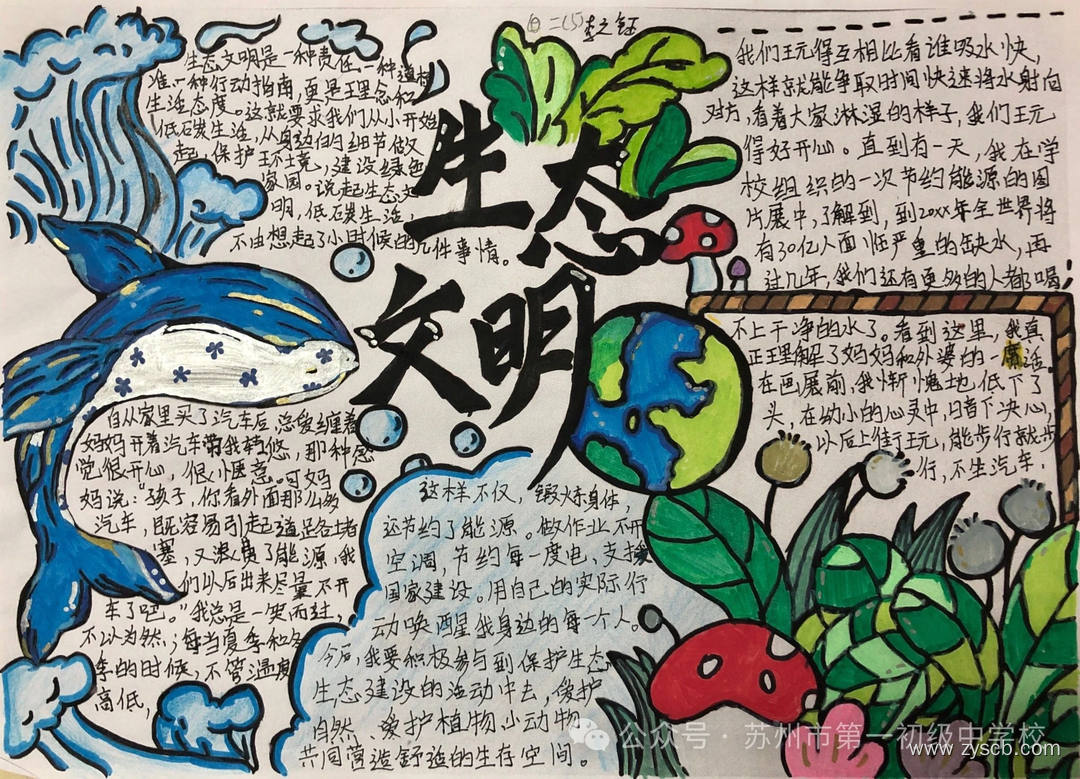 生态文明
生态文明是一种责任,一种道标
准,一种行动指南,更是理念和
生活态度。这就要求我们从小开始
低石炭生活,从身边的细节做
起,保护环境,建设绿色
家园。说起生态文
明,低石炭生活,
不由想起了小时候的几件事情。
自从家里买了汽车后,总爱缠着
妈妈开着汽车带我转悠,那种感
觉很开心,很惬意。可妈
妈说:"孩子,你看外面那么多
汽车,既容易引起道路堵
塞,又浪费了能源,我
们以后出来尽量不开
车了吧。"我总是一笑而过,
不以为然;每当夏季和冬
季的时候,不管温度
高低,
我们玩得互相比看谁吸水快,
这样就能争取时间快速将水射向
对方,看着大家淋湿的样子,我们玩
得好开心。直到有一天,我在学
校组织的一次节约能源的图
片展中,了解到,到20xx年全世界将
有30亿人面临严重的缺水,再
过几年,我们还有更多的人都喝
不上干净的水了。看到这里,我真
正理解了妈妈和外婆的一席话。
在画展前,我惭愧地低下了
头,在幼小的心灵中,暗下决心,
以后上街玩,能步行就步
行,不坐汽车.
这样不仅,锻炼身体,
还节约了能源。做作业不开
空调,节约每一度电,支援
国家建设。用自己的实际行
动唤醒我身边的每一个人。
今后,我要积极参与到保护生态
生态建设的活动中去,爱护
自然、爱护植物小动物
共同营造舒适的生存空间。
公众号·苏州市第一初级中学校
www.zyscb.com